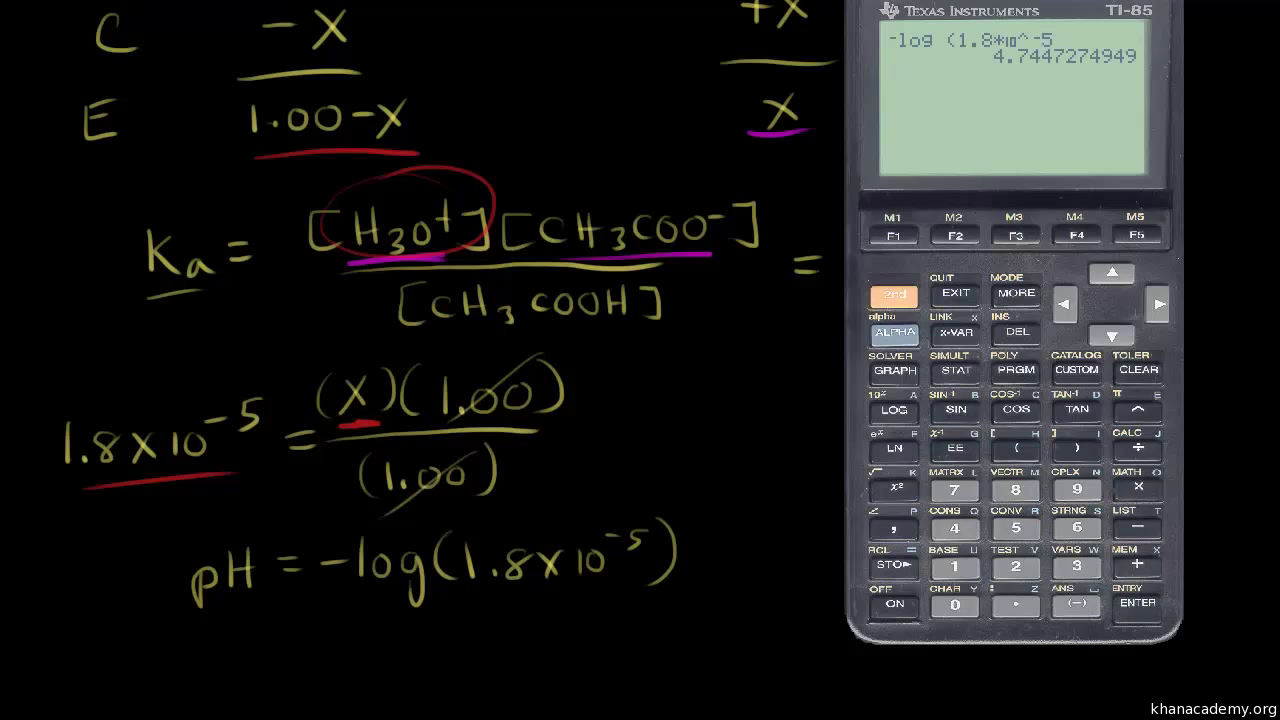 C -X +X
E 1.00-X X
Ka = [H3O+][CH3COO-] =
[CH3COOH]
1.8 x 10^-5 = (X)(1.00)
(1.00)
pH = -log(1.8x10^-5)
TEXAS INSTRUMENTS TI-85
-log (1.8*10^-5
4.7447274949
M1 M2 M3 M4 M5
F1 F2 F3 F4 F5
QUIT MODE
2nd EXIT MORE
alpha LINK x INS
ALPHA x-VAR DEL
SOLVER SIMULT POLY CATALOG TOLER
GRAPH STAT PRGM CUSTOM CLEAR
10^x A SIN-1 B COS-1 C TAN-1 D π E
LOG SIN COS TAN ^
e^x F x-1 G [ H ] I CALC J
LN EE ( ) ÷
√ K MATRX L VECTR M CPLX N MATH O
x² 7 8 9 ×
∠ P CONS Q CONV R STRNG S LIST T
, 4 5 6 −
RCL = BASE U TEST V VARS W MEM X
STO▶ 1 2 3 +
OFF CHAR Y : Z ANS ENTRY
ON 0 . (−) ENTER
khanacademy.org